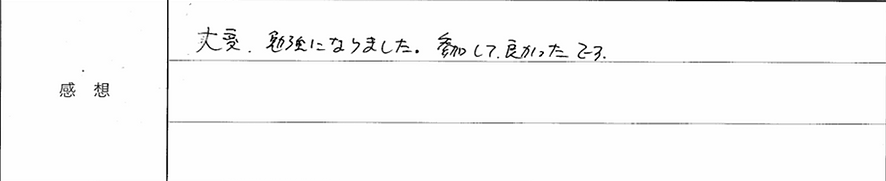 大変、勉強になりました。参加して、良かったです。
感想